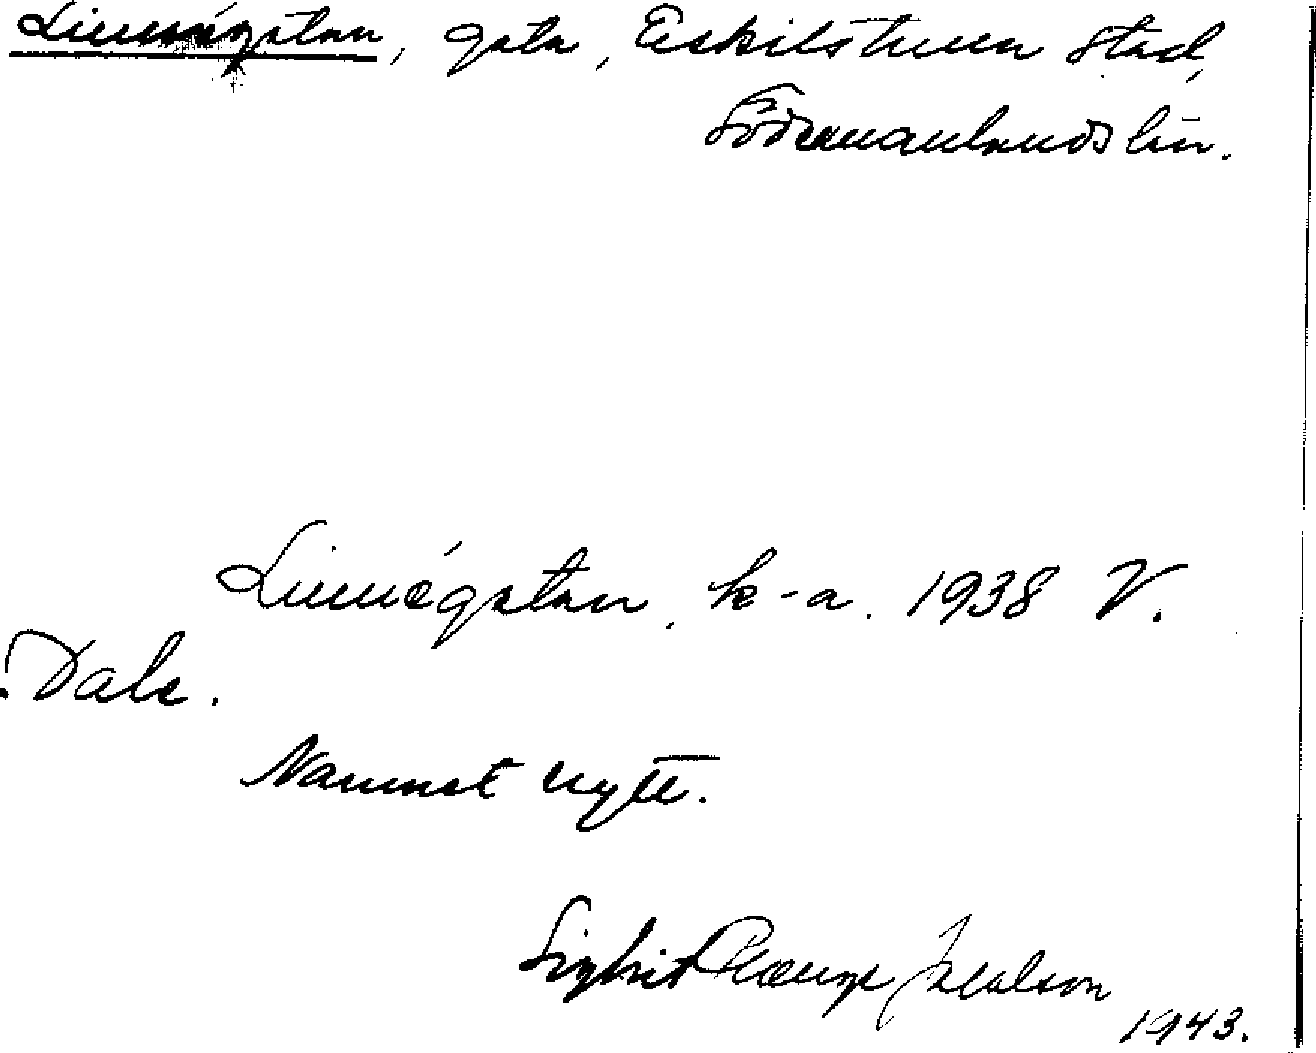 Linnégatan, gata, Eskilstuna stad,
Södermanlands län.
Linnégatan. k-a. 1938 V.
Dale.
Namnet nytt.
Sigbrit Plænge Jacobson
1943.